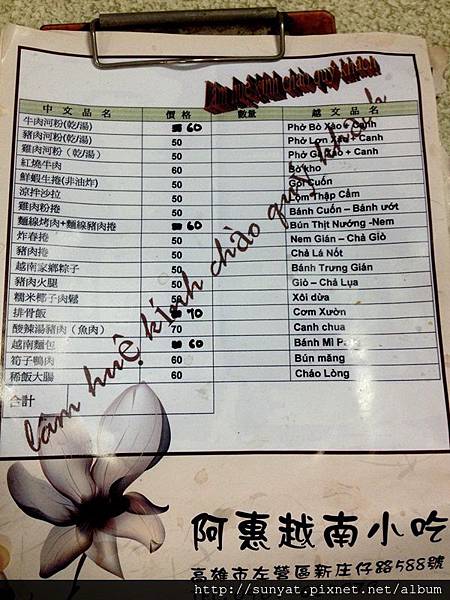 中文品名 價格 數量 越文品名
牛肉河粉(乾/湯) 60 Phở Bò Xào + Canh
豬肉河粉(乾/湯) 50 Phở Lợn + Canh
雞肉河粉(乾/湯) 50 Phở Gà + Canh
紅燒牛肉 60 Bò kho
鮮蝦生捲(非油炸) 50 Gỏi Cuốn
涼拌沙拉 50 Thập Cẩm
雞肉粉捲 50 Bánh Cuốn – Bánh ướt
麵線烤肉+麵線豬肉捲 60 Bún Thịt Nướng -Nem
炸春捲 50 Nem Gián – Chả Giò
豬肉捲 50 Chả Lá Nốt
越南家鄉粽子 50 Bánh Trưng Gián
豬肉火腿 50 Giò – Chả Lụa
糯米椰子肉鬆 50 Xôi dừa
排骨飯 70 Cơm Xườn
酸辣湯豬肉(魚肉) 70 Canh chua
越南麵包 60 Bánh Mì
筍子鴨肉 60 Bún măng
稀飯大腸 60 Cháo Lòng
合計
lâm huệ kính chào quý khách
阿惠越南小吃
高雄市左營區新庄仔路588號
http://sunyat.pixnet.net/album